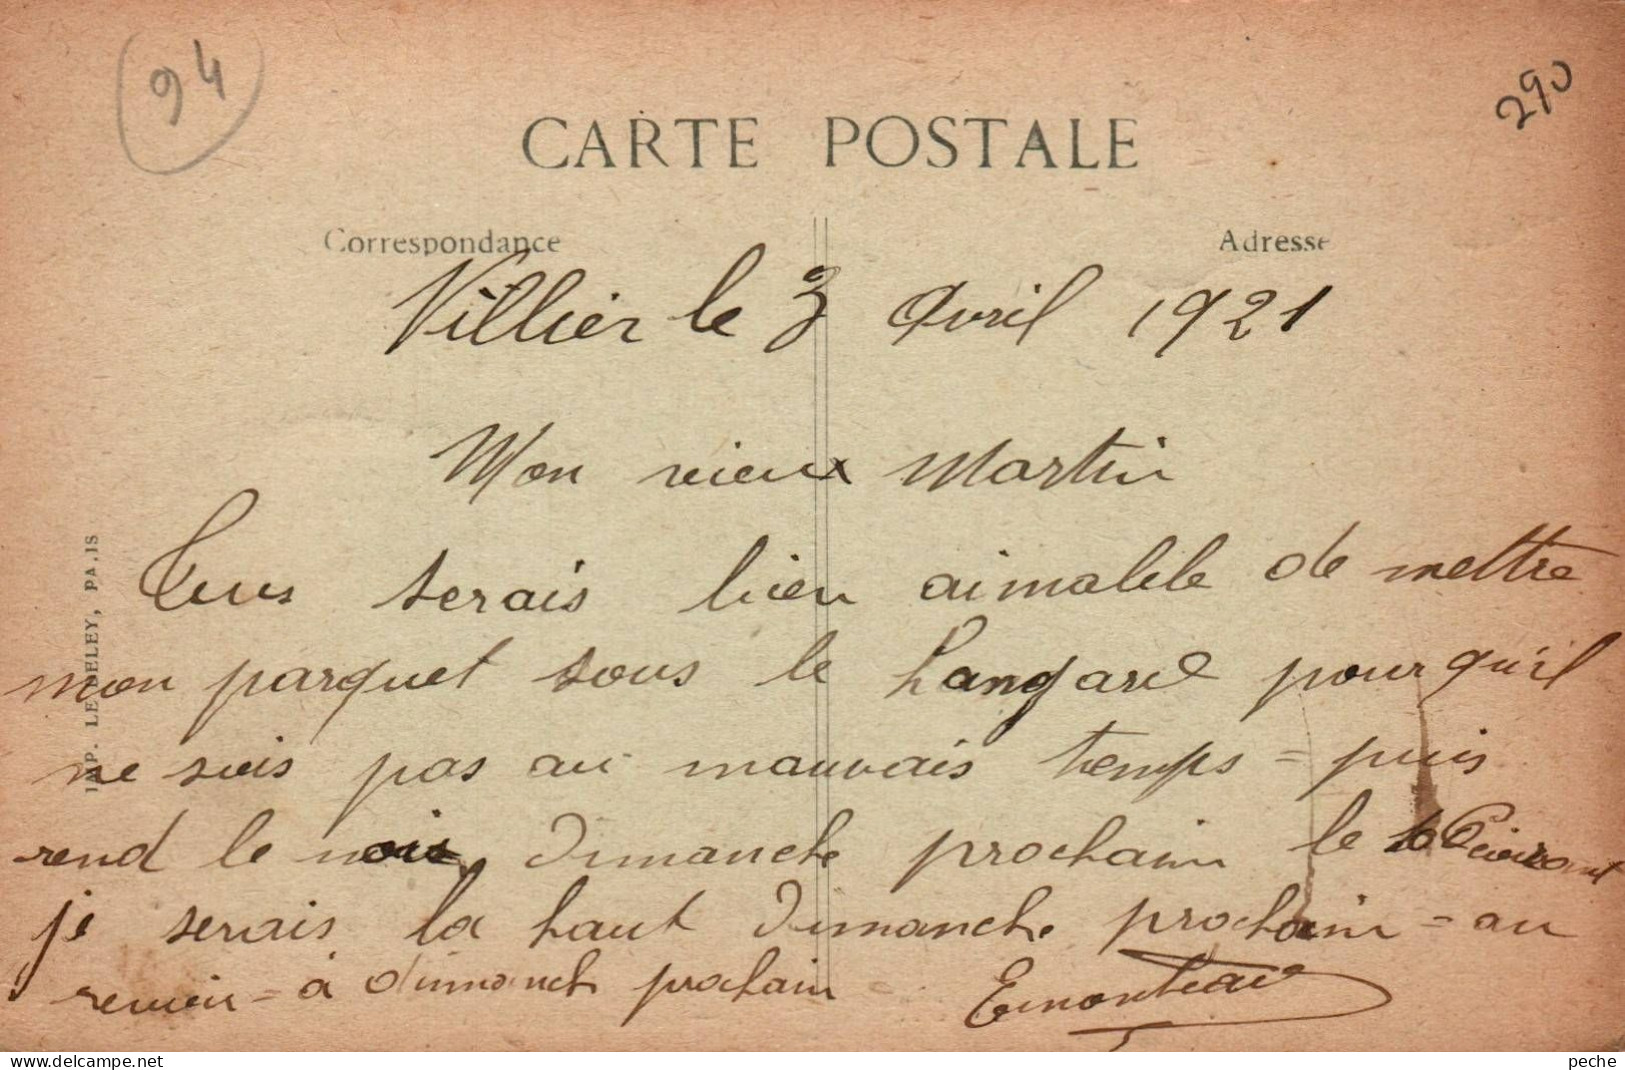 94
290
CARTE POSTALE
Correspondance
Adresse
Villier le 3 Avril 1921
Mon vieux Martin
Tus serais bien aimable de mettre
mon parquet sous le hangard pour qu'il
ne sois pas au mauvais temps = puis
rend le mois Dimanche prochain le 10
je serais la haut Dimanche prochain = au
revoir = à dimanche prochain
IMP. LE DELEY, PARIS
www.delcampe.net
peche